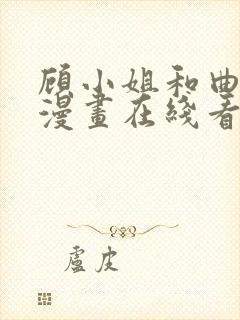 顾小姐和曲
漫畫在綫看
盧皮